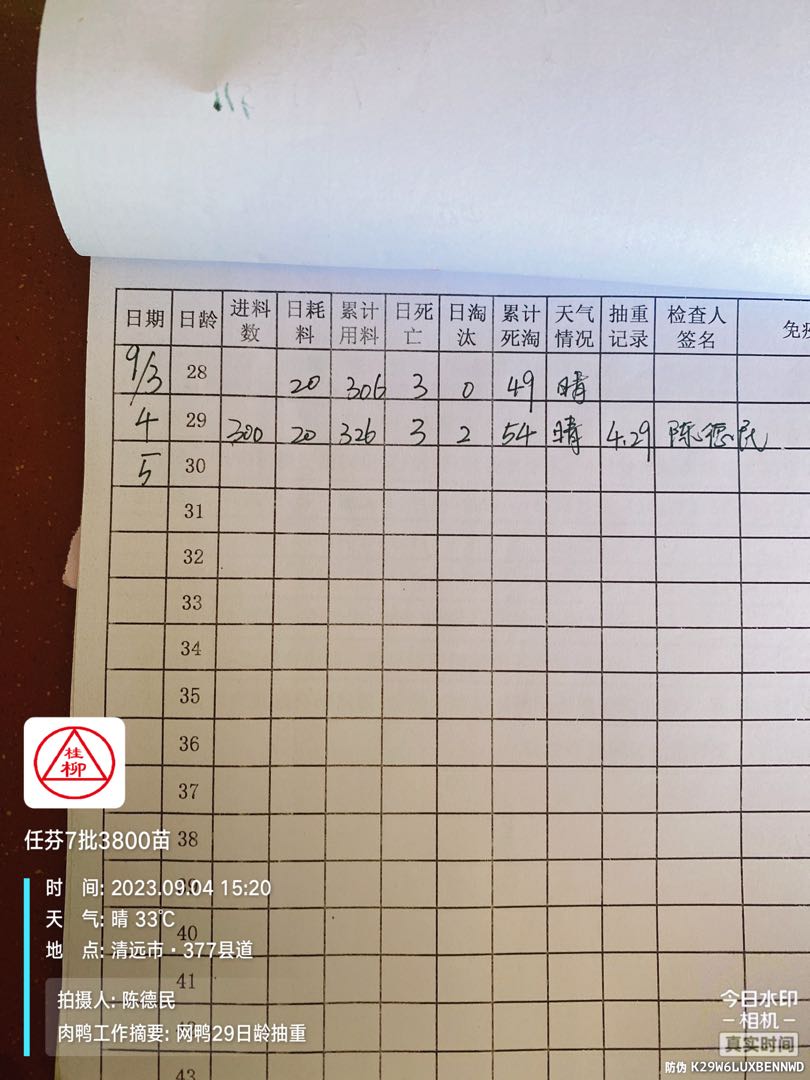 日期 日龄 进料数 日耗料 累计用料 日死亡 日淘汰 累计死淘 天气情况 抽重记录 检查人签名 免疫
9/3 28 20 306 3 0 49 晴
4 29 300 20 326 3 2 54 晴 4.29 陈德民
5 30
31
32
33
34
35
36
37
38
39
40
41
43
桂柳
任芬7批3800苗
时 间: 2023.09.04 15:20
天 气: 晴 33℃
地 点: 清远市·377县道
拍摄人: 陈德民
肉鸭工作摘要: 网鸭29日龄抽重
今日水印
-相机-
真实时间
防伪 K29W6LUXBENNWD